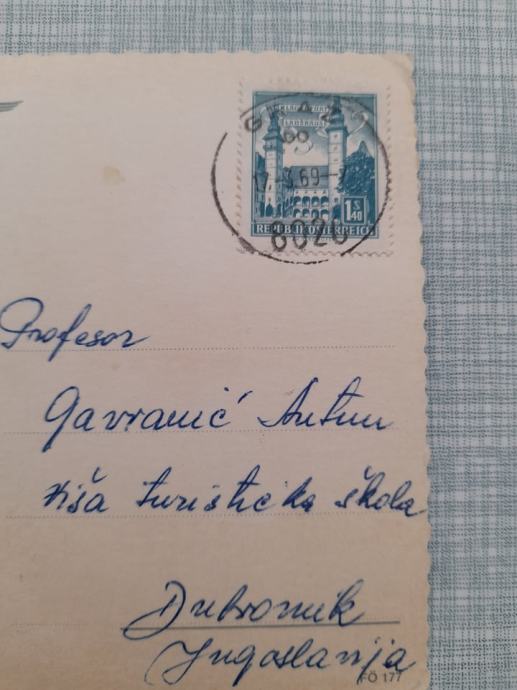 GRAZ
8
KLAGENFURT
LANDHAUS
17.-3.69-7
1 S 40
REPUBLIK ÖSTERREICH
8020
Profesor
Gavranić Antun
Viša turistička škola
Dubrovnik
Jugoslavija
FÖ 177